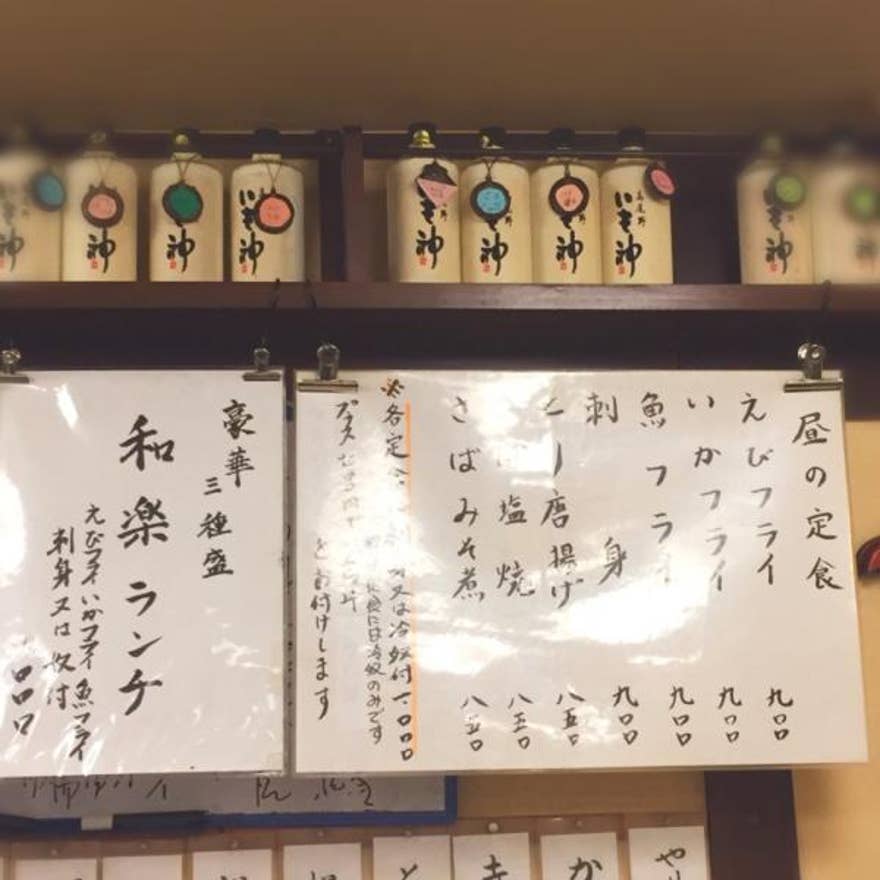 いも神
いも神
いも神
いも神
いも神
いも神
いも神
いも神
昼の定食
えびフライ 九〇〇
いかフライ 九〇〇
魚フライ 九〇〇
刺身 九〇〇
とり唐揚げ 八五〇
さば塩焼 八五〇
さばみそ煮 八五〇
※各定食 刺身又は冷奴付 一、〇〇〇
定食には冷奴のみです
プラス
をお付けします
豪華
三種盛
和楽ランチ
えびフライ いかフライ 魚フライ
刺身又は奴付
〇〇〇